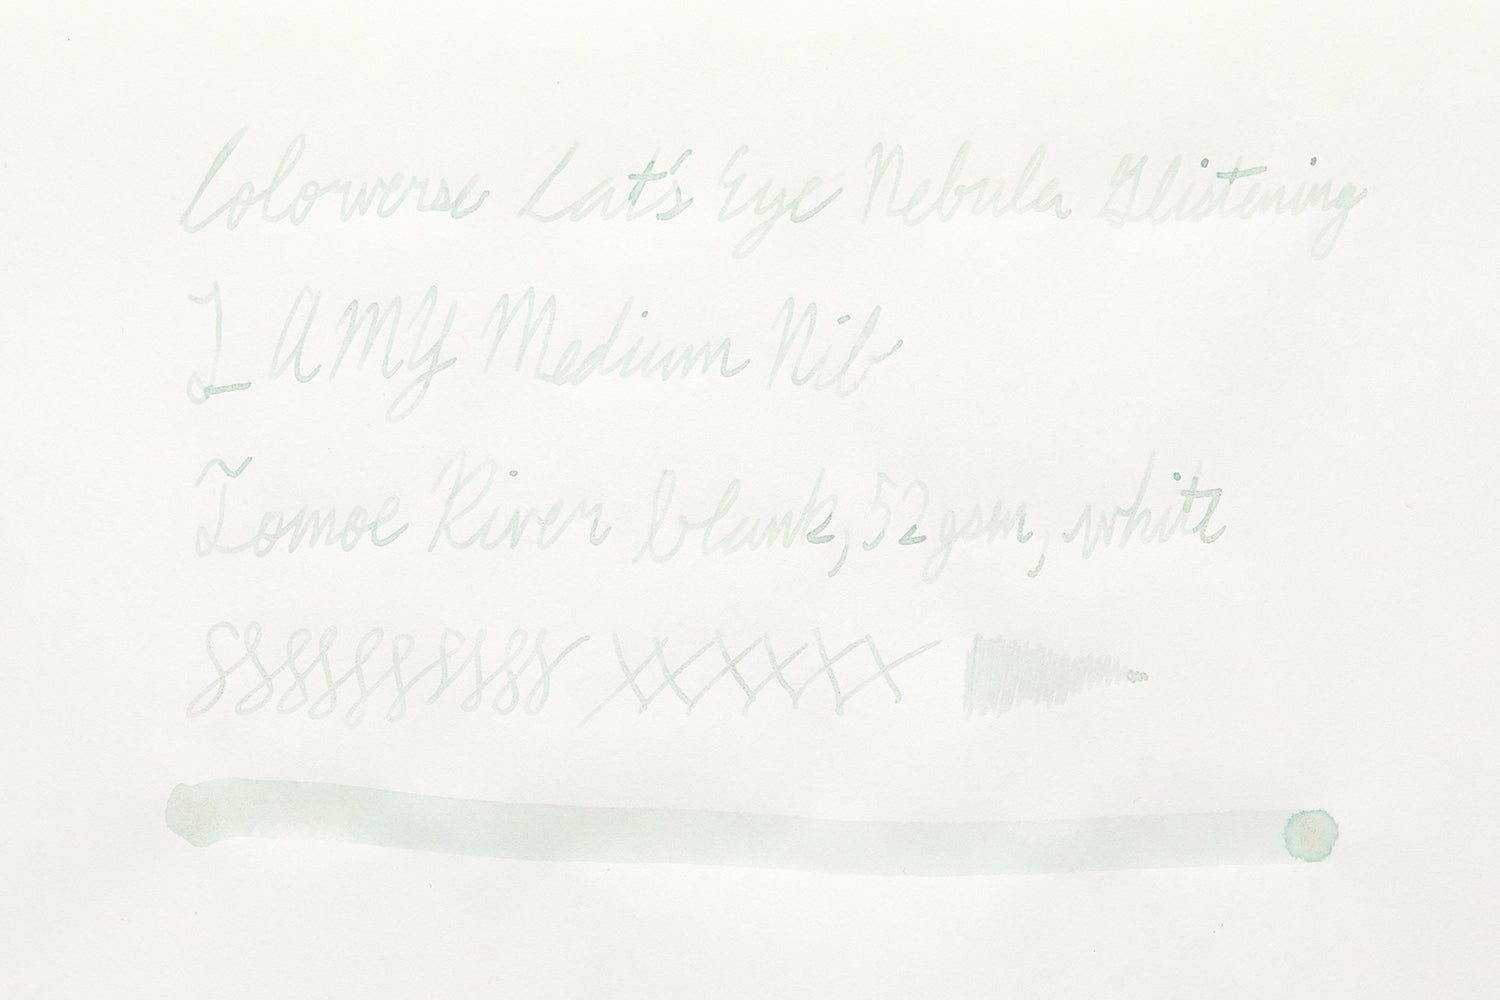 Colorverse Cat's Eye Nebula Glistening
LAMY Medium Nib
Tomoe River blank, 52gsm, white